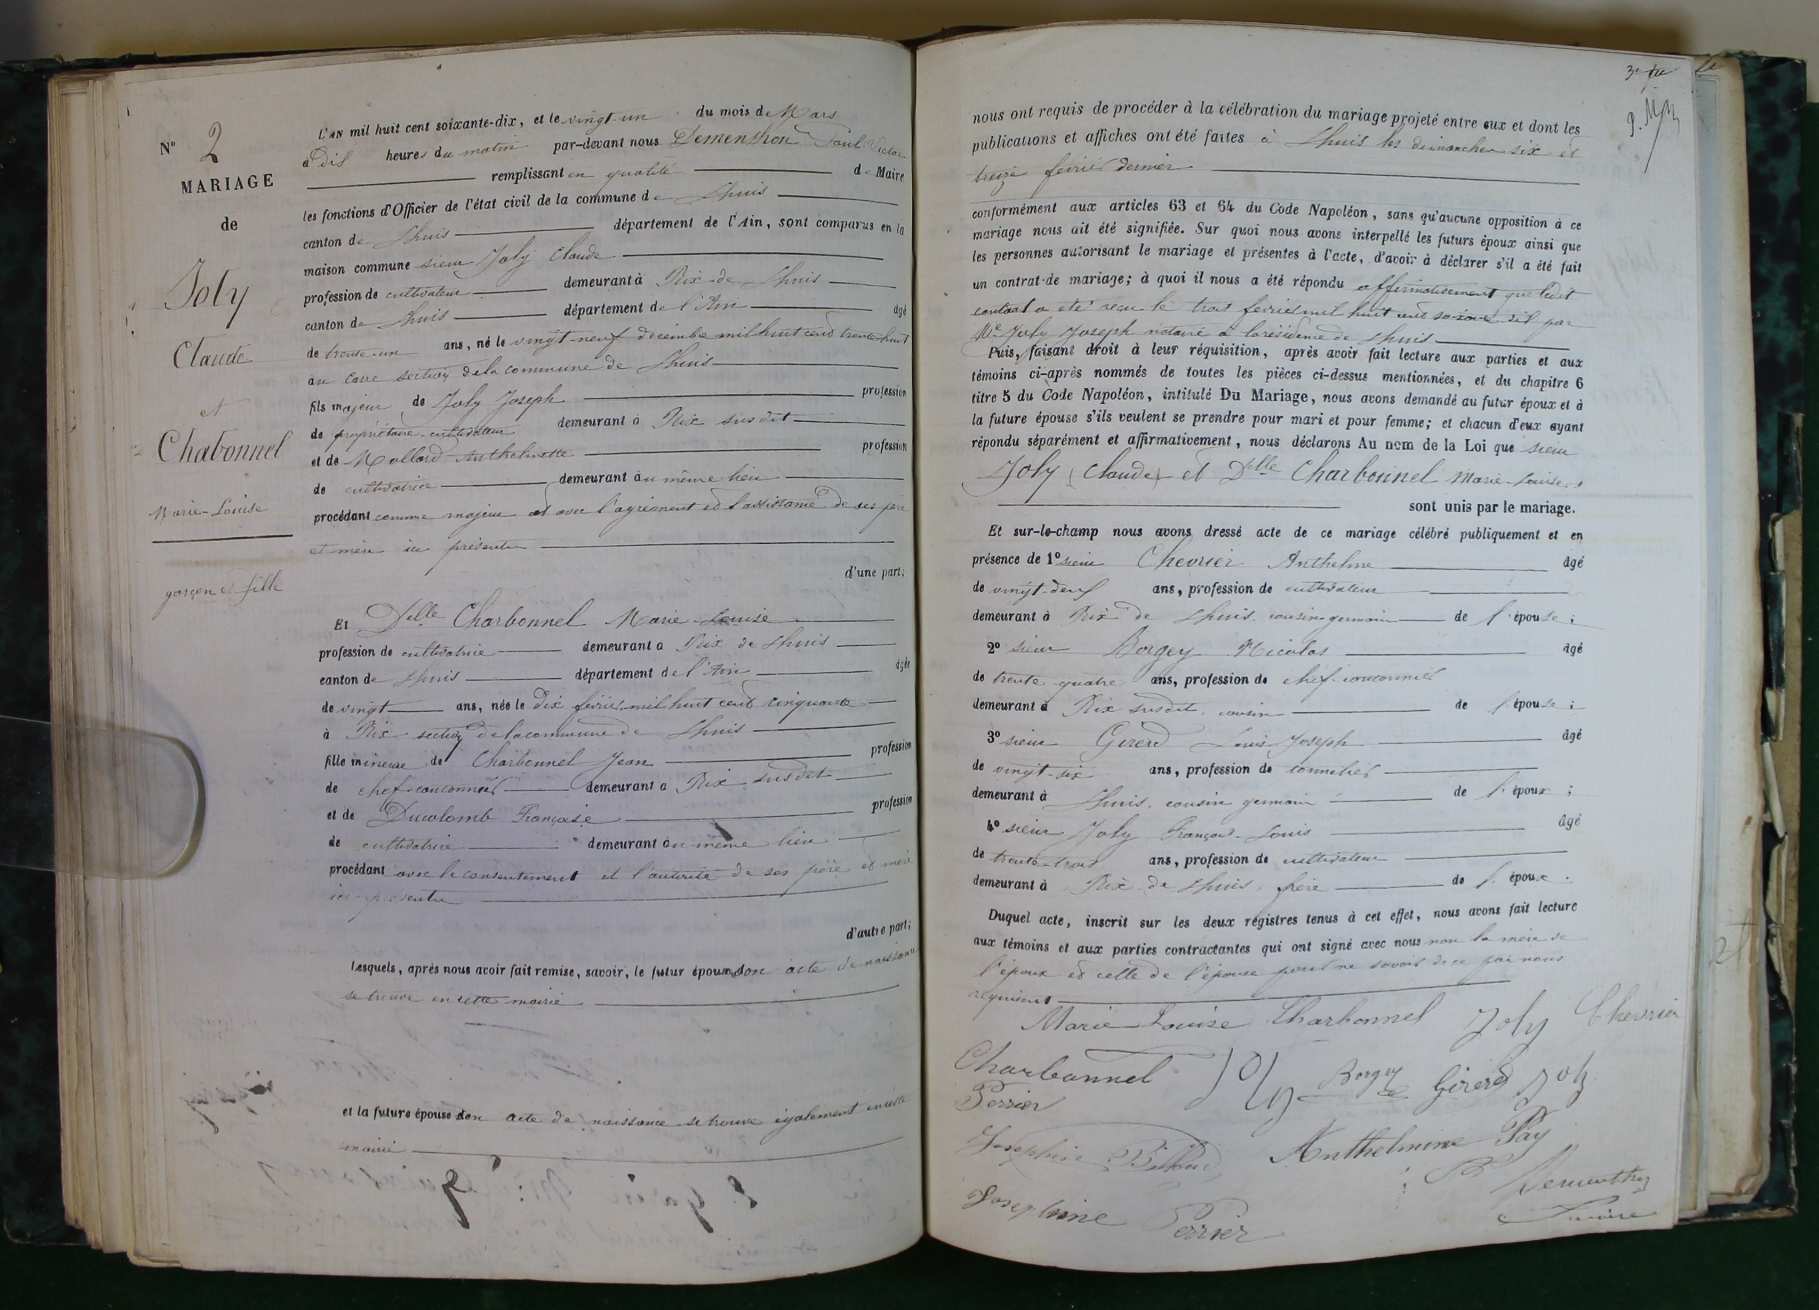 N° 2
MARIAGE
de
Joly
Claude
et
Chabonnel
Marie-Louise
garçon et fille
L'AN mil huit cent soixante-dix, et le vingt un du mois de Mars
à Dix heures du matin par-devant nous Dementhon Paul Victor
remplissant en qualité de Maire
les fonctions d'Officier de l'état civil de la commune de Lhuis
canton de Lhuis département de l'Ain, sont comparus en la
maison commune sieur Joly Claude
profession de cultivateur demeurant à Rix de Lhuis
canton de Lhuis département de l'Ain âgé
de trente-un ans, né le vingt-neuf décembre mil huit cent trente-huit
au section de la commune de Lhuis
fils majeur de Joly Joseph profession
de propriétaire-cultivateur demeurant à Rix susdit
et de Mollard Anthelmette profession
de cultivatrice demeurant au même lieu
procédant comme majeur et avec l'agrément et l'assistance de ses père
et mère ici présents
d'une part;
Et Delle Charbonnel Marie-Louise
profession de cultivatrice demeurant à Rix de Lhuis
canton de Lhuis département de l'Ain âgée
de vingt ans, née le dix février mil huit cent cinquante
à Rix section de la commune de Lhuis
fille mineure de Charbonnel Jean profession
de chef-cantonnier demeurant à Rix susdit
et de Ducolomb Françoise profession
de cultivatrice demeurant au même lieu
procédant avec le consentement et l'autorité de ses père et mère
ici présents
d'autre part;
Lesquels, après nous avoir fait remise, savoir, le futur époux son acte de naissance
se trouve en cette mairie
et la future épouse son acte de naissance se trouve également en cette
mairie
nous ont requis de procéder à la célébration du mariage projeté entre eux et dont les
publications et affiches ont été faites à Lhuis les dimanches six et
treize février dernier
conformément aux articles 63 et 64 du Code Napoléon, sans qu'aucune opposition à ce
mariage nous ait été signifiée. Sur quoi nous avons interpellé les futurs époux ainsi que
les personnes autorisant le mariage et présentes à l'acte, d'avoir à déclarer s'il a été fait
un contrat de mariage; à quoi il nous a été répondu affirmativement que ledit
contrat a été reçu le trois février mil huit cent soixante dix par
Me Joly Joseph notaire à la résidence de Lhuis
Puis, faisant droit à leur réquisition, après avoir fait lecture aux parties et aux
témoins ci-après nommés de toutes les pièces ci-dessus mentionnées, et du chapitre 6
titre 5 du Code Napoléon, intitulé Du Mariage, nous avons demandé au futur époux et à
la future épouse s'ils veulent se prendre pour mari et pour femme; et chacun d'eux ayant
répondu séparément et affirmativement, nous déclarons Au nom de la Loi que sieur
Joly (Claude) et Delle Charbonnel Marie-Louise
sont unis par le mariage.
Et sur-le-champ nous avons dressé acte de ce mariage célébré publiquement et en
présence de 1° sieur Chevrier Anthelme âgé
de vingt-neuf ans, profession de cultivateur
demeurant à Rix de Lhuis cousin-germain de l'épouse;
2° sieur Borgey Nicolas âgé
de trente-quatre ans, profession de chef-cantonnier
demeurant à Rix susdit, cousin de l'épouse;
3° sieur Girerd Louis Joseph âgé
de vingt-six ans, profession de tonnelier
demeurant à Lhuis, cousin germain de l'époux;
4° sieur Joly François-Louis âgé
de trente-trois ans, profession de cultivateur
demeurant à Rix de Lhuis, frère de l'époux.
Duquel acte, inscrit sur les deux registres tenus à cet effet, nous avons fait lecture
aux témoins et aux parties contractantes qui ont signé avec nous non la mère de
l'époux et celle de l'épouse pour ne savoir de ce par nous
requises
Marie Louise Charbonnel Joly Chevrier
Charbonnel Joly Borgey Girerd Joly
Perrier
Josephine Anthelmine Pay
Dementhon
Josephine Perrier
maire